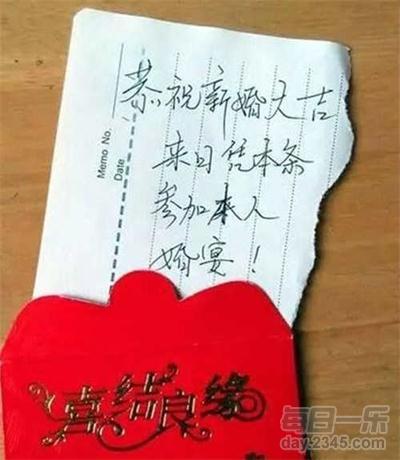 Memo No.
Date
恭祝新婚大吉
来日凭本条
参加本人
婚宴！
喜结良缘
每日一乐
day.2345.com